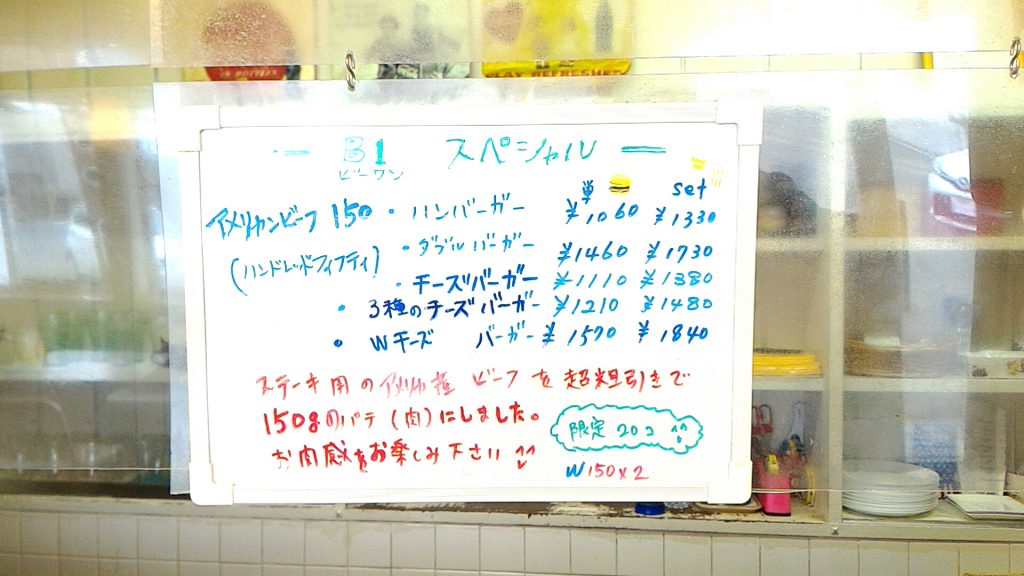 IN BOTTLES
B1 スペシャル
ビーワン
単 set
アメリカンビーフ 150 ・ハンバーガー ¥1060 ¥1330
(ハンドレッドフィフティ) ・ダブルバーガー ¥1460 ¥1730
・チーズバーガー ¥1110 ¥1380
・3種のチーズバーガー ¥1210 ¥1480
・Wチーズ バーガー ¥1570 ¥1840
ステーキ用のアメリカ産 ビーフを超粗引きで
150gのパテ(肉)にしました。
お肉感をお楽しみ下さい
限定 20コ
W150×2